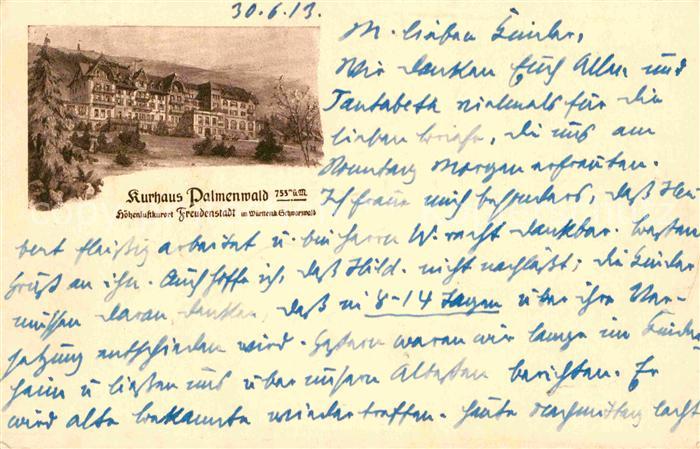 30.6.13.
M. lieben Kinder,
Wir danken Euch Allen und
Tantabeth vielmals für die
lieben Briefe, die uns am
Sonntag Morgen erfreuten.
Ich freue mich besonders, daß Her-
bert fleißig arbeitet u. bin Herrn W. recht dankbar. besten
Gruß an ihn. Auch hoffe ich, daß Hild. nicht nachläßt; die Kinder
müssen daran denken, daß in 8-14 Tagen über ihre Ver-
setzung entschieden wird. Gestern waren wir lange im Kinder
heim u ließen uns über unsern Ältesten berichten. Er
wird alte Bekannte wiedertreffen. Heute Nachmittag
Kurhaus Palmenwald 755 m ü.M.
Höhenluftkurort Freudenstadt im Württemb. Schwarzwald